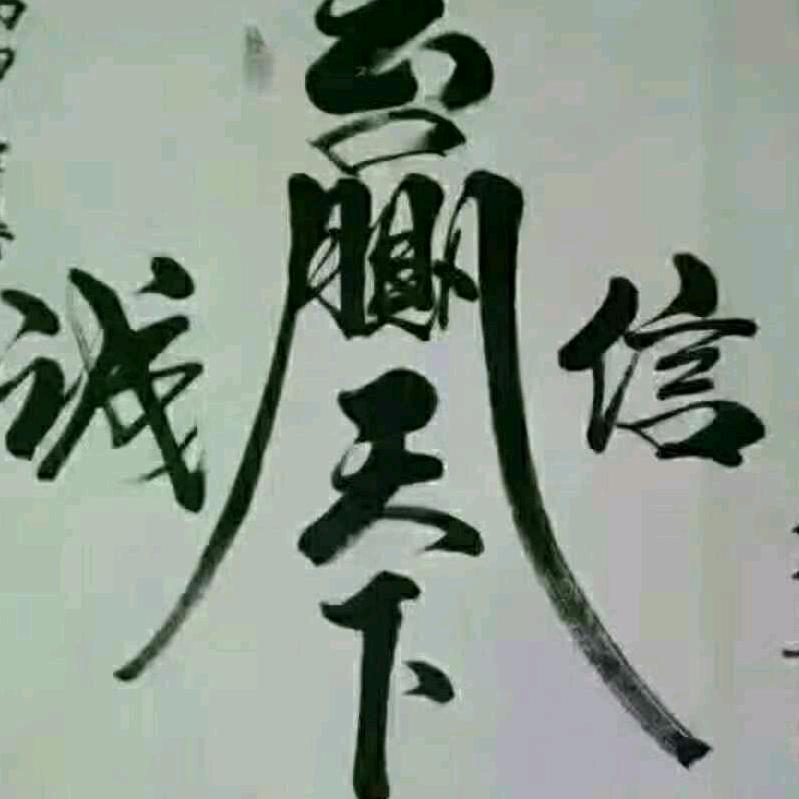 诚信
赢
天
下